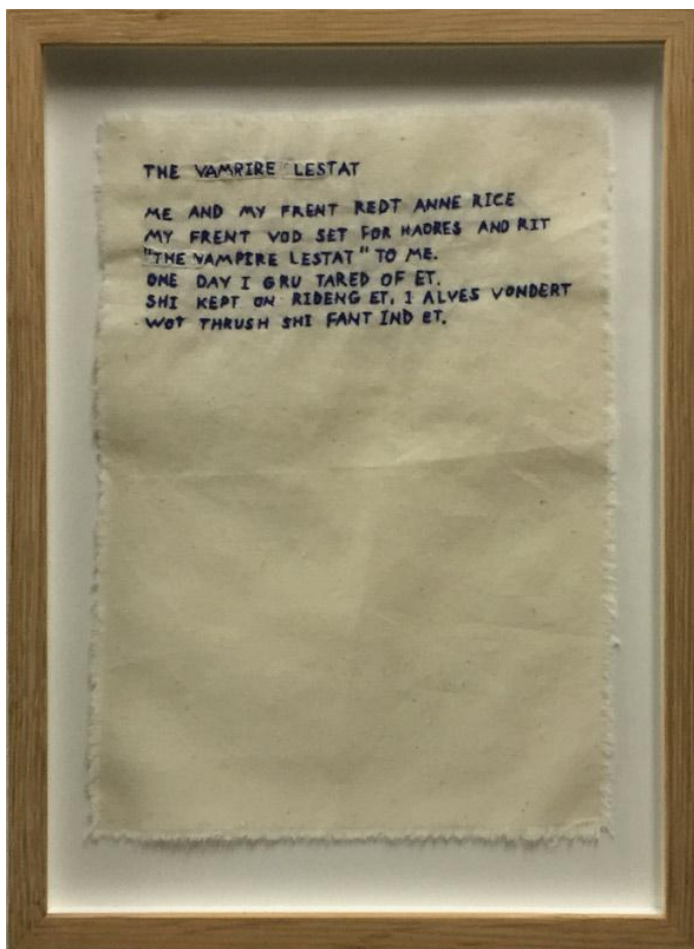 THE VAMPIRE LESTAT
ME AND MY FRENT REDT ANNE RICE
MY FRENT VOD SET FOR HADRES AND RIT
"THE VAMPIRE LESTAT" TO ME.
ONE DAY I GRU TARED OF ET.
SHI KEPT ON RIDENG ET. I ALVES VONDERT
WOT THRUSH SHI FANT IND ET.